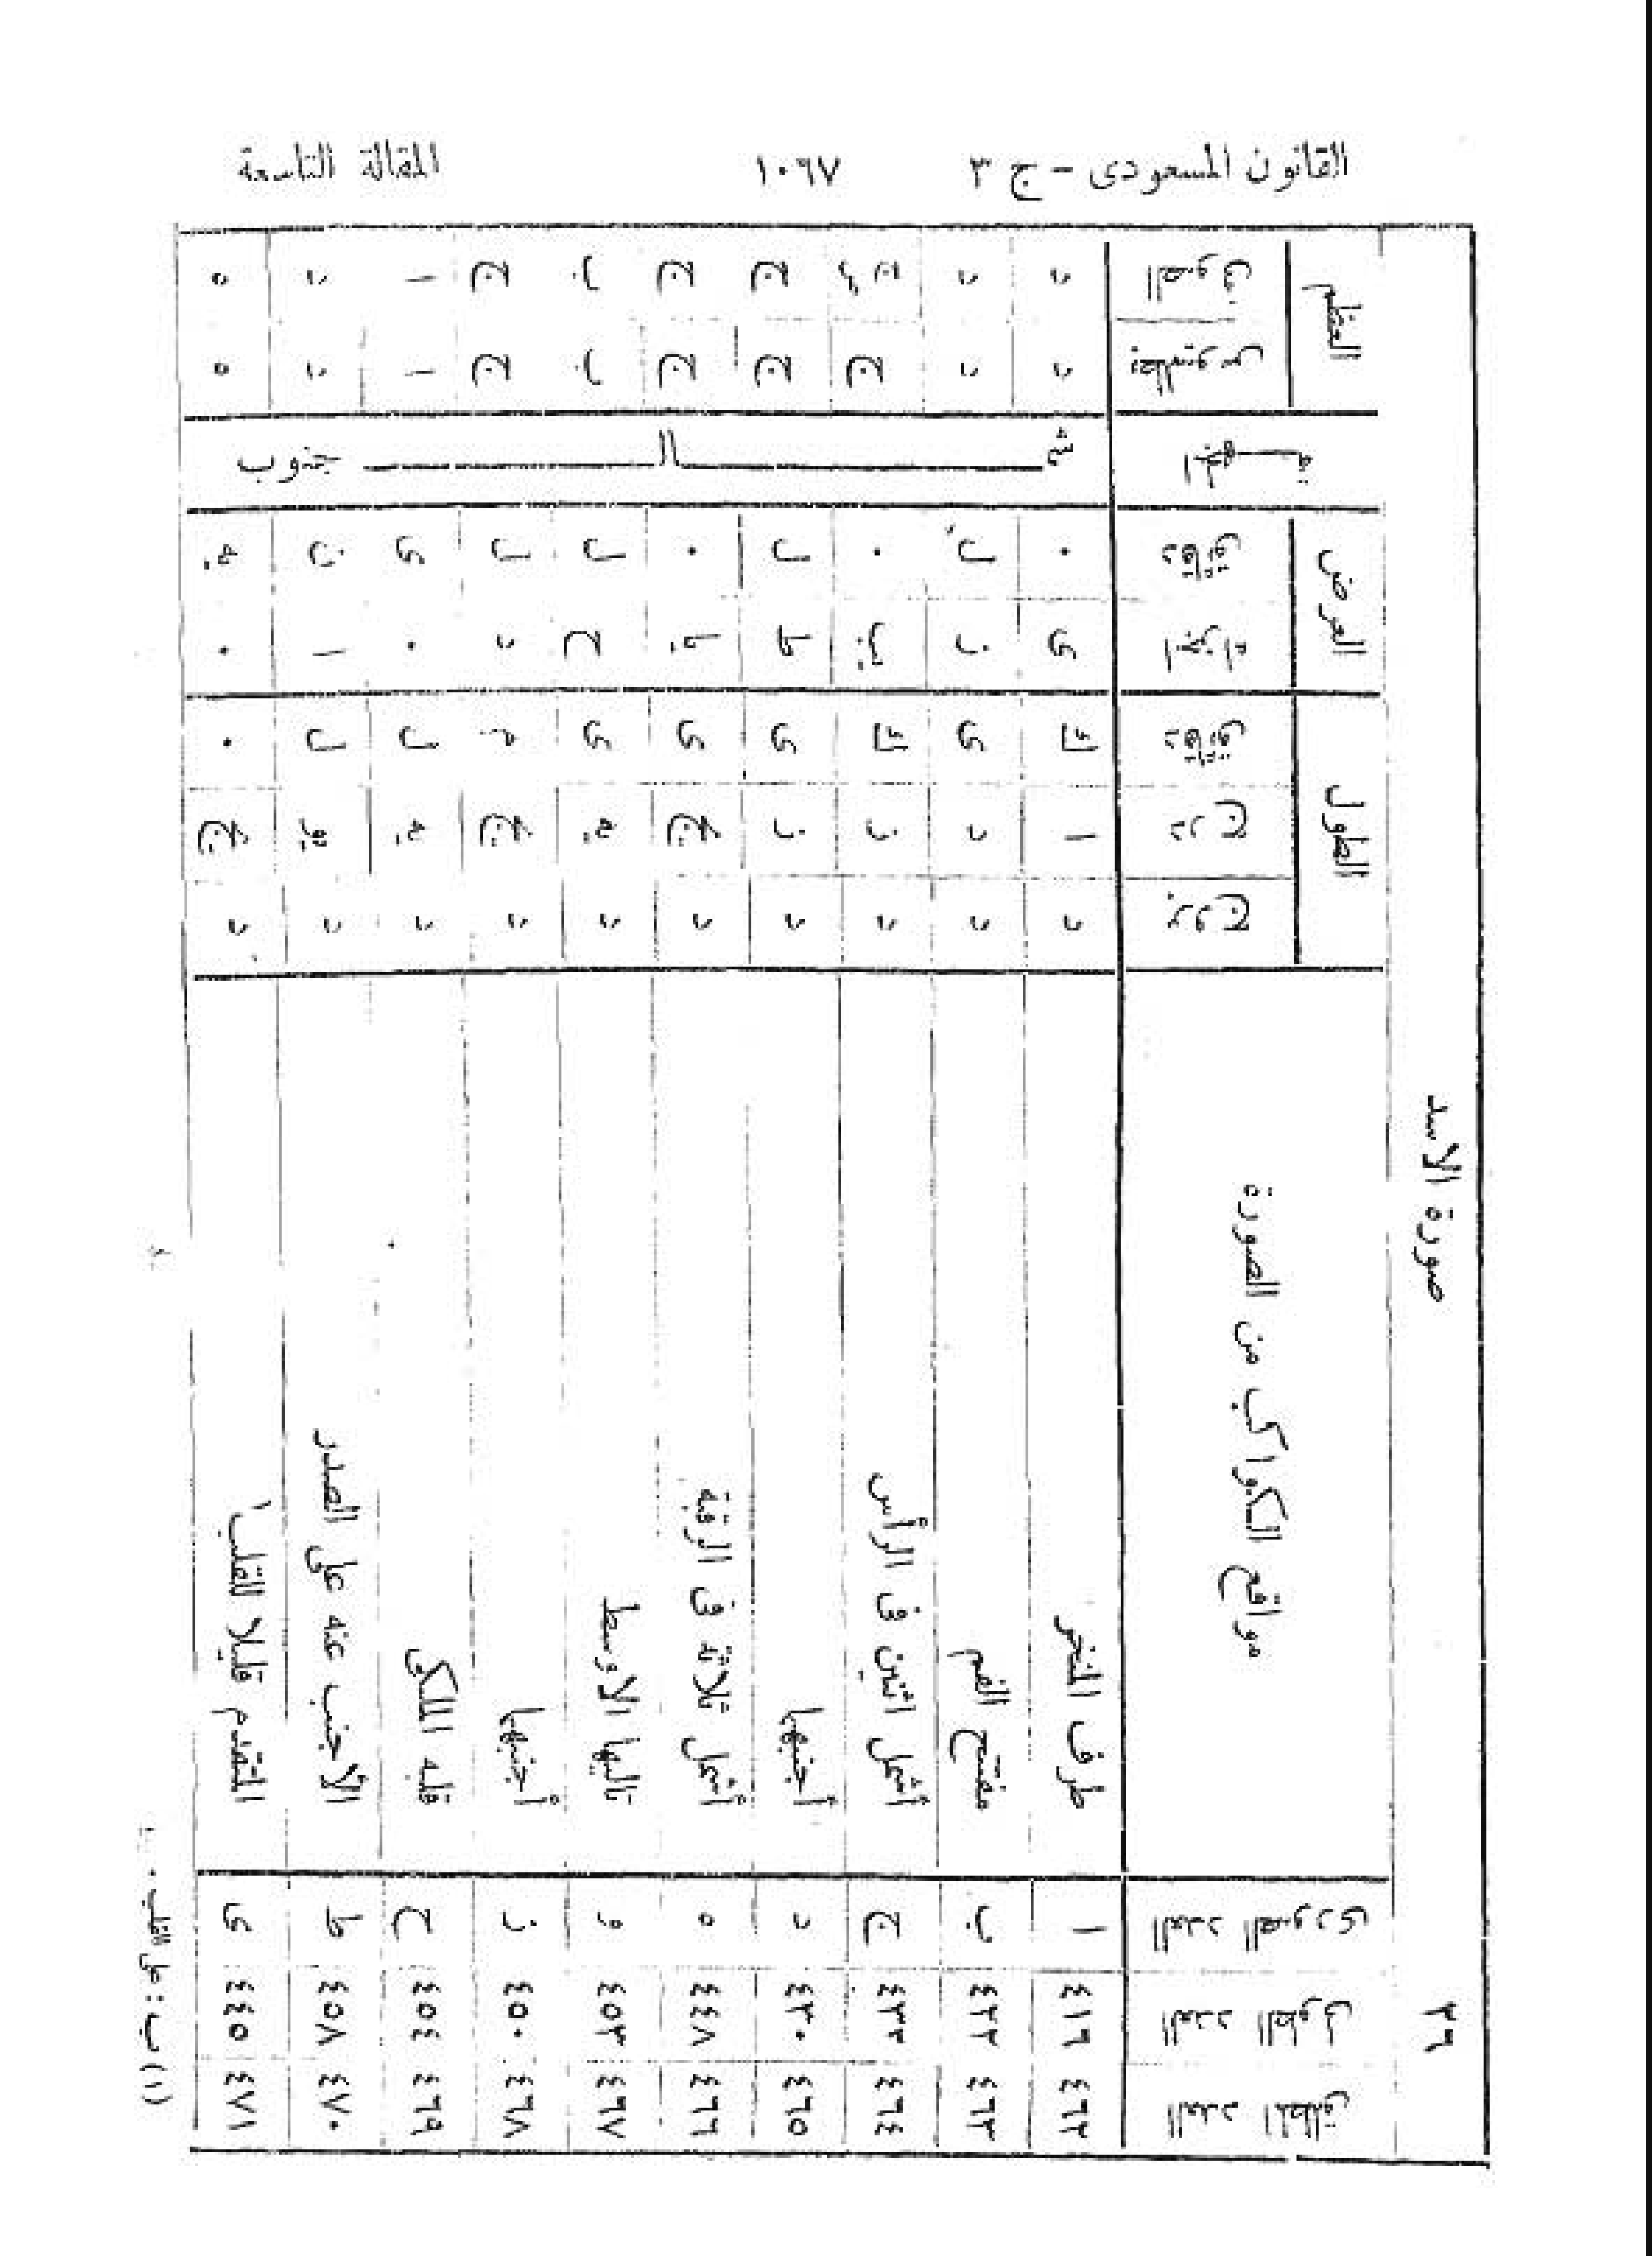 القانون المسعودى - ج ٣ ١٠٦٧ المقالة التاسعة
٢٩ صورة الاسد
العدد المطلق العدد الطولى العدد الصورى مواقع الكواكب من الصورة الطول العرض الجهة العظم
بروج درج دقائق اجزاء دقائق بطلميوس الصوفى
٤٦٢ ٤١٦ ا طرف المنخر د ا ك ى ٠ شمال د د
٤٦٣ ٤٢٢ ب مفتح الفم د د ى ز ل د د
٤٦٤ ٤٣٢ ج أشمل اثنين فى الرأس د ز ك يب ٠ ج
٤٦٥ ٤٣٠ د أجنبها د ز ى ط ل ج ج
٤٦٦ ٤٤٨ ه أشمل ثلاثة فى الرقبة د يج ى يا ٠ ج ج
٤٦٧ ٤٥٣ و تاليها الاوسط د يه ى ح ل ب ب
٤٦٨ ٤٥٠ ز أجنبها د يج ه د ل ج ج
٤٦٩ ٤٥٤ ح قلبه الملكى د يه ل ٠ ى ا ا
٤٧٠ ٤٥٨ ط الأجنب عنه على الصدر د يو ل ا ن جنوب د د
٤٧١ ٤٤٥ ى المتقدم قليلا للقلب١ د يج ٠ ٠ يه ه ه
(١) ب : على القلب .